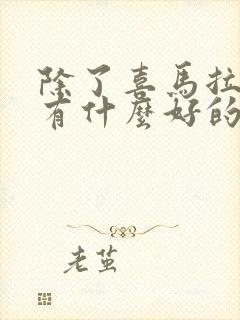 除了喜馬拉
有什麼好的
老茧